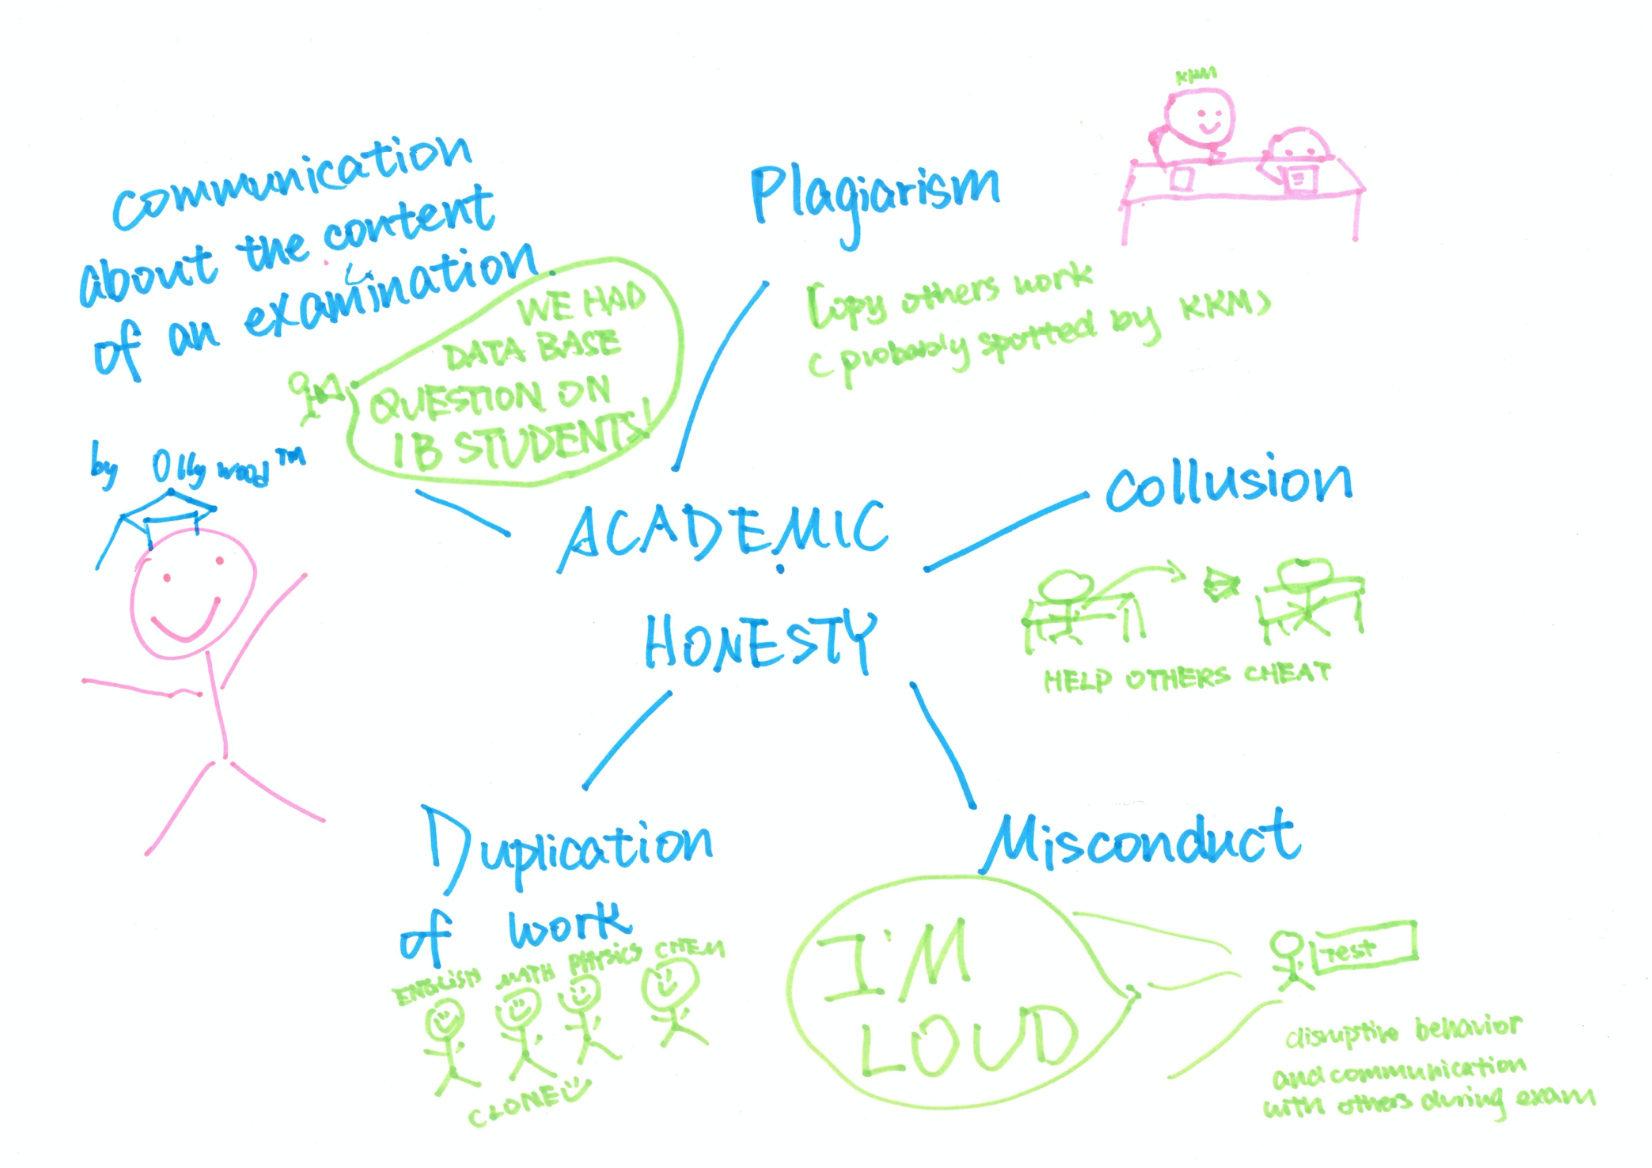 communication
about the content
of an examination
WE HAD
DATA BASE
QUESTION ON
IB STUDENTS!
by Ollywood™
Plagiarism
KKM
Copy others work
(probably spotted by KKM)
ACADEMIC
HONESTY
collusion
HELP OTHERS CHEAT
Duplication
of work
ENGLISH MATH PHYSICS CHEM
CLONE
Misconduct
I'M
LOUD
Test
disruptive behavior
and communication
with others during exam